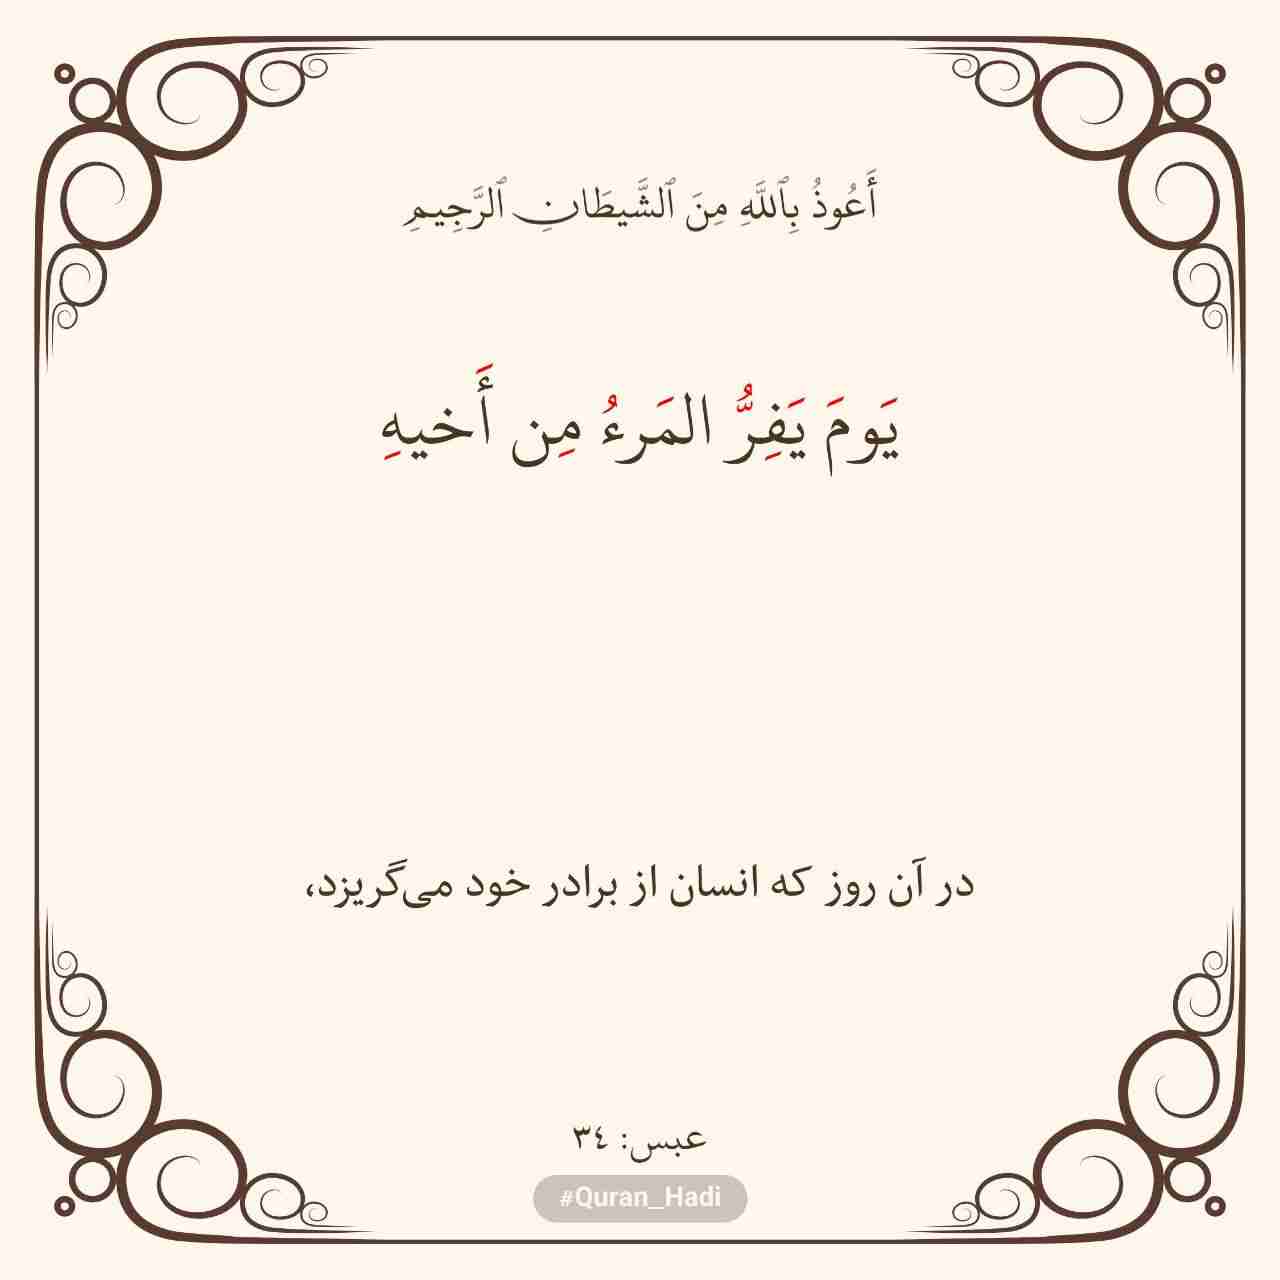 أَعُوذُ بِٱللَّهِ مِنَ ٱلشَّيطَانِ ٱلرَّجِيمِ
يَومَ يَفِرُّ المَرءُ مِن أَخيهِ
در آن روز که انسان از برادر خود می‌گریزد،
عبس: ٣٤
#Quran_Hadi